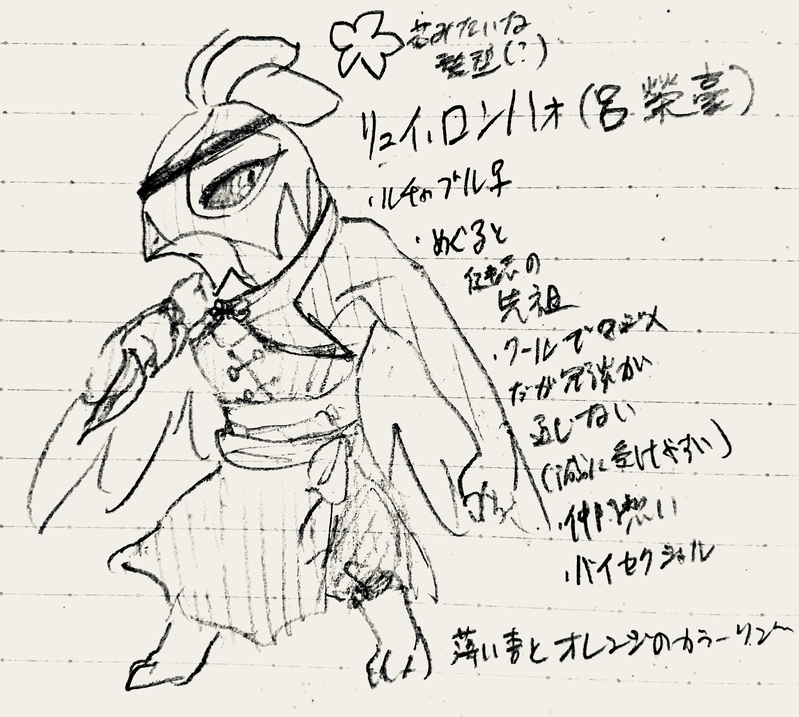 花みたいな
髪型(?)
リュイ・ロンハオ(呂榮豪)
・ルチャブル♀
・めぐると
の
先祖
・クールでマジメ
だが冗談が
通じない
(に受けやすい)
・仲間想い
・バイセクシャル
薄い青とオレンジのカラーリング